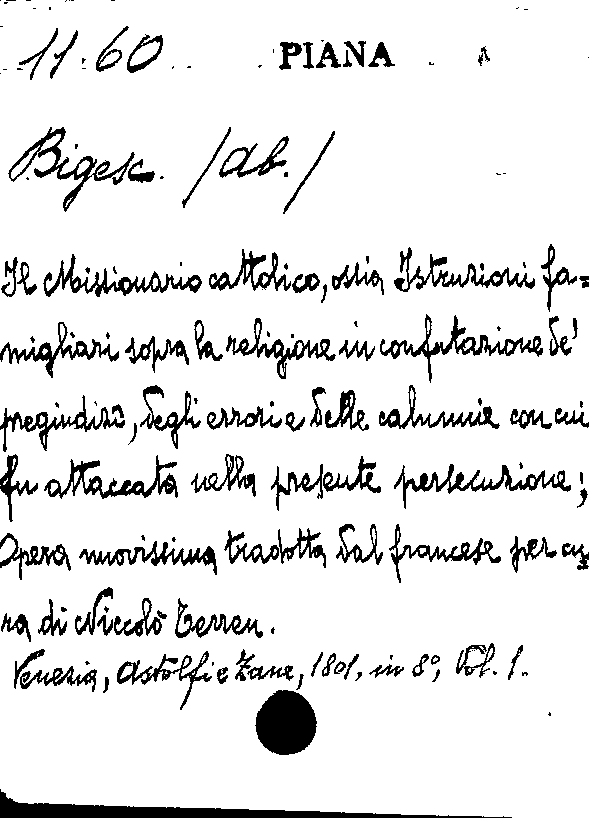 11.60 PIANA
Bigesc. /Ab./
Il Missionario cattolico, ossia Istruzioni fa=
migliari sopra la religione in confutazione de'
pregiudizi, degli errori e delle calunnie con cui
fu attaccata nella presente persecuzione;
Opera nuovissima tradotta dal francese per cu
ra di Niccolò Terren.
Venezia, Astolfi e Zane, 1801, in 8°, Vol. 1.